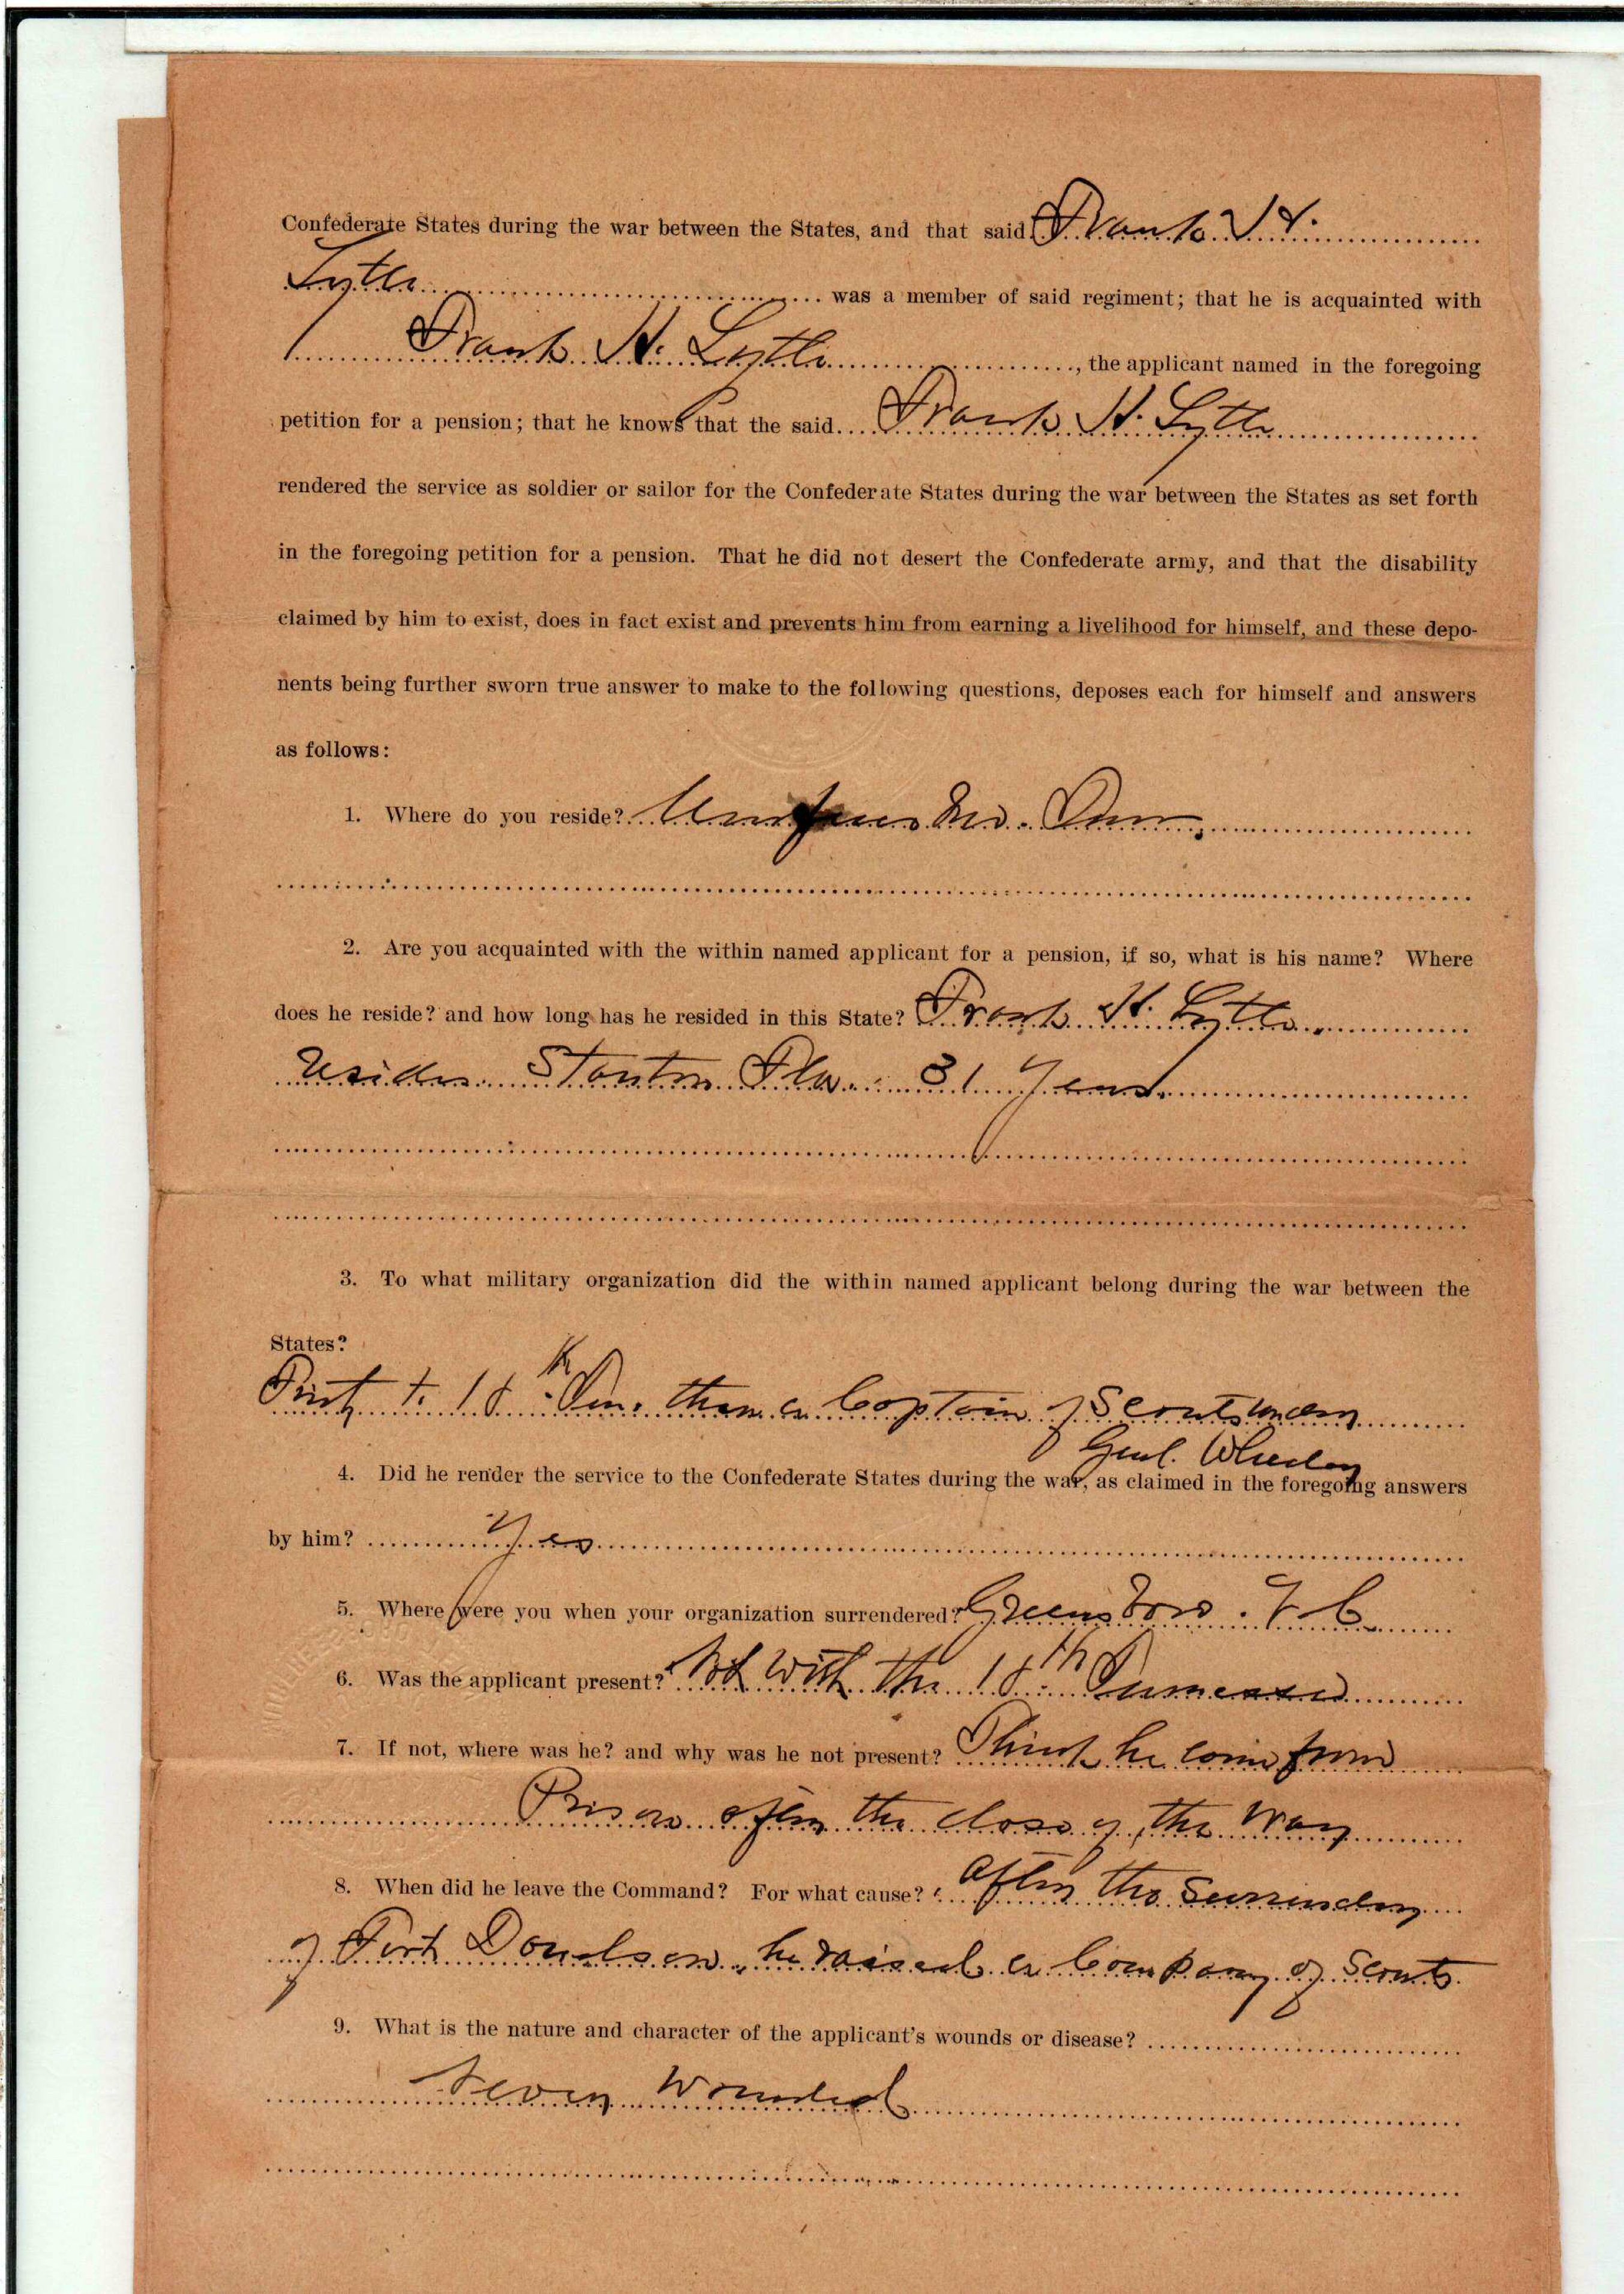 Confederate States during the war between the States, and that said Frank H.
Lytle was a member of said regiment; that he is acquainted with
Frank H. Lytle, the applicant named in the foregoing
petition for a pension; that he knows that the said Frank H. Lytle
rendered the service as soldier or sailor for the Confederate States during the war between the States as set forth
in the foregoing petition for a pension. That he did not desert the Confederate army, and that the disability
claimed by him to exist, does in fact exist and prevents him from earning a livelihood for himself, and these depo-
nents being further sworn true answer to make to the following questions, deposes each for himself and answers
as follows:
1. Where do you reside? Tenn.
2. Are you acquainted with the within named applicant for a pension, if so, what is his name? Where
does he reside? and how long has he resided in this State? Frank H. Lytle.
resides Stanton Fla. 31 Years.
3. To what military organization did the within named applicant belong during the war between the
States?
First to 18th Tenn. then a Captain of Scouts under
Genl. Wheeler
4. Did he render the service to the Confederate States during the war, as claimed in the foregoing answers
by him? Yes
5. Where were you when your organization surrendered? Greensboro. N C.
6. Was the applicant present? Not with the 18th Tennessee
7. If not, where was he? and why was he not present? Think he come from
Prison after the close of the War
8. When did he leave the Command? For what cause? After the Surrender
of Fort Donelson, he raised a Company of Scouts.
9. What is the nature and character of the applicant's wounds or disease?
Never Wounded